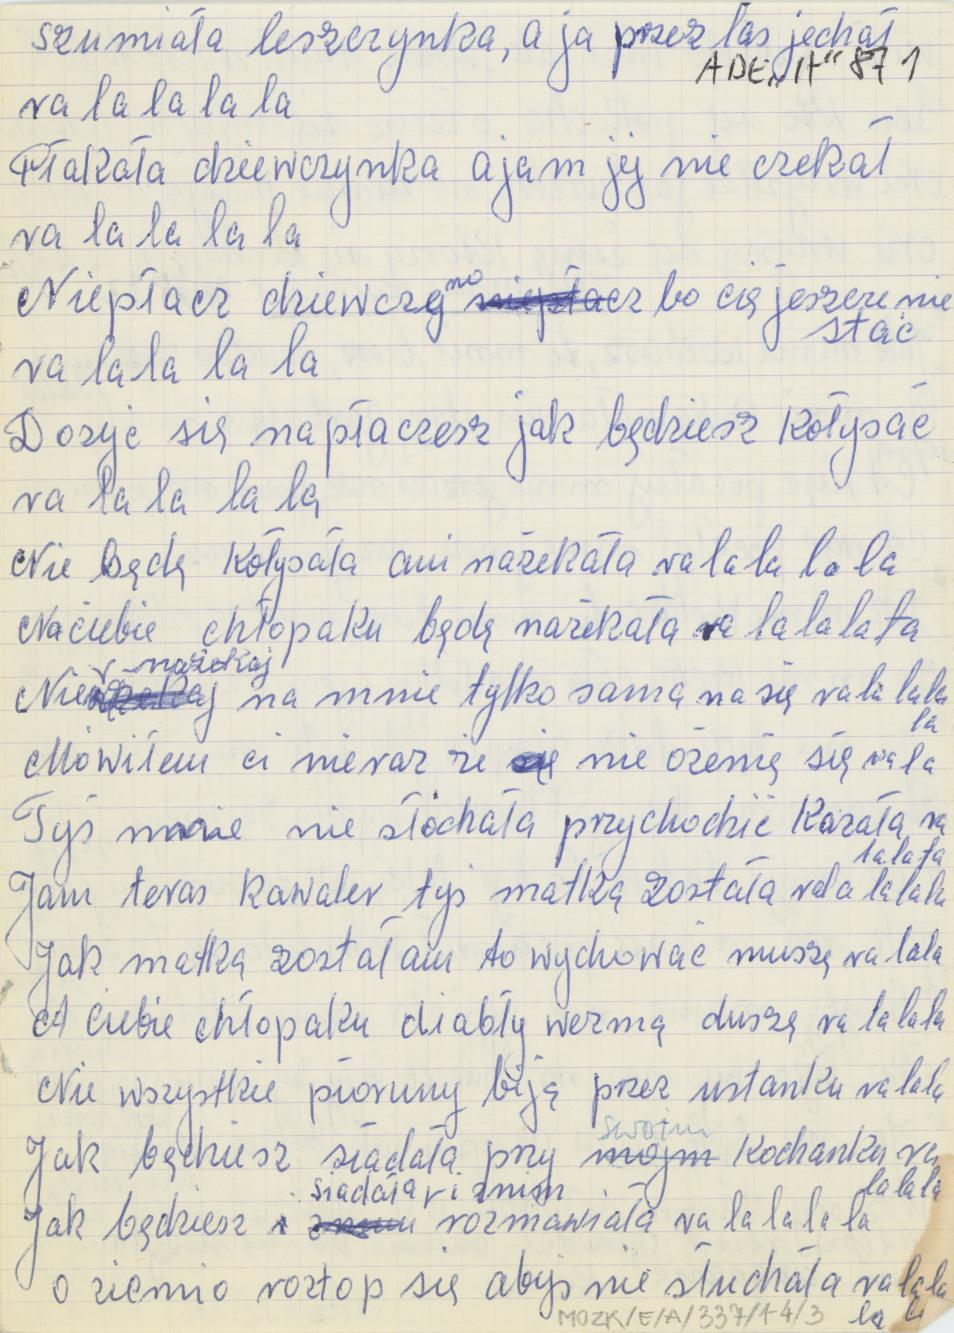 szumiała leszczynka, a ja przez las jechał
ADE „H" 87 1
ra la la la la
Płakała dziewczynka a jam jej nie czekał
ra la la la la
Niepłacz dziewczyno niepłacz bo cię jeszcze nie
stać
ra la la la la
Dozyć się napłaczesz jak będziesz kołysać
ra la la la lą
Nie będę kołysała ani nażekała ra la la la la
Naciebie chłopaku będę nażekała ra la la la ła
nażekaj
Nie na mnie tylko samą na się ra la la la
la
Mówiłem ci nieraz że się nie ożenię się ra la
Tyś mnie nie słóchała przychodzić kazała ra
la la ła
Jam teras kawaler tyś matką została rala la la la
Jak matką zostałam to wychować muszę ra la la
A ciebie chłopaku diabły wezmą duszę ra la la la
Nie wszystkie pioruny biją przez ustanku ra la lą
swoim
Jak będziesz siadała przy mojm kochanku ra
la la la
siadała i z nim
Jak będziesz i rozmawiała ra la la la la
o ziemio roztop się abyś nie słuchała ra la la
la la
MOZK/E/A/337/1-4/3